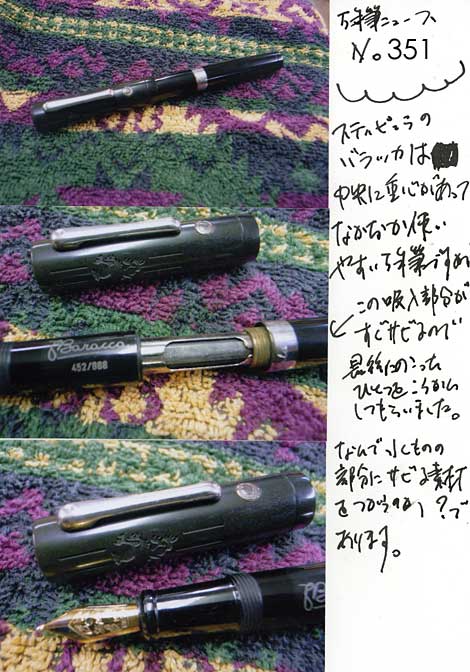 万年筆ニュース
No 351
ステピュラの
バラッカは
中央に重心があって
なかなか使い
やすい万年筆ですが
この吸入部分が
すぐサビるので
最後にのこった
ひとつをころがし
してもらいました。
なんで水ものの
部分にサビる素材
をつかうのか?で
あります。
F.Baracca
452/988